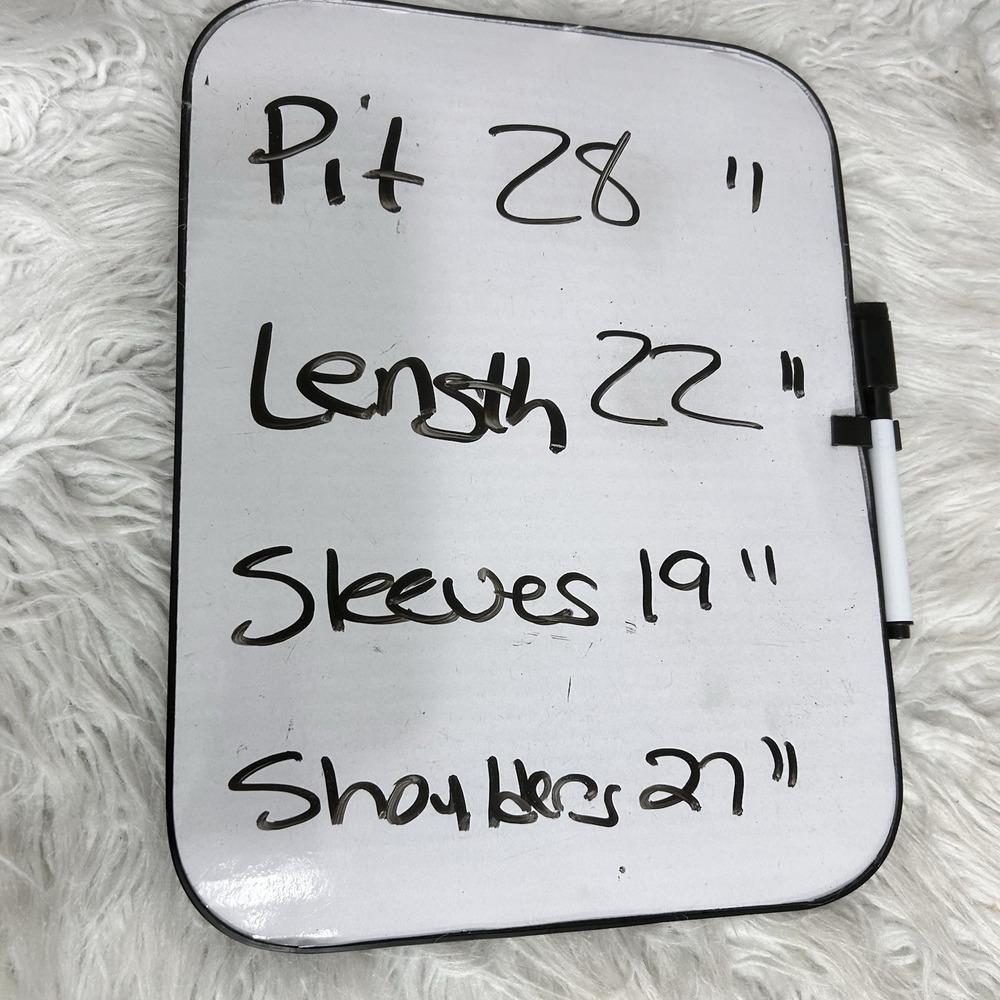 Pit 28 "
Length 22 "
Sleeves 19 "
Shoulders 27 "